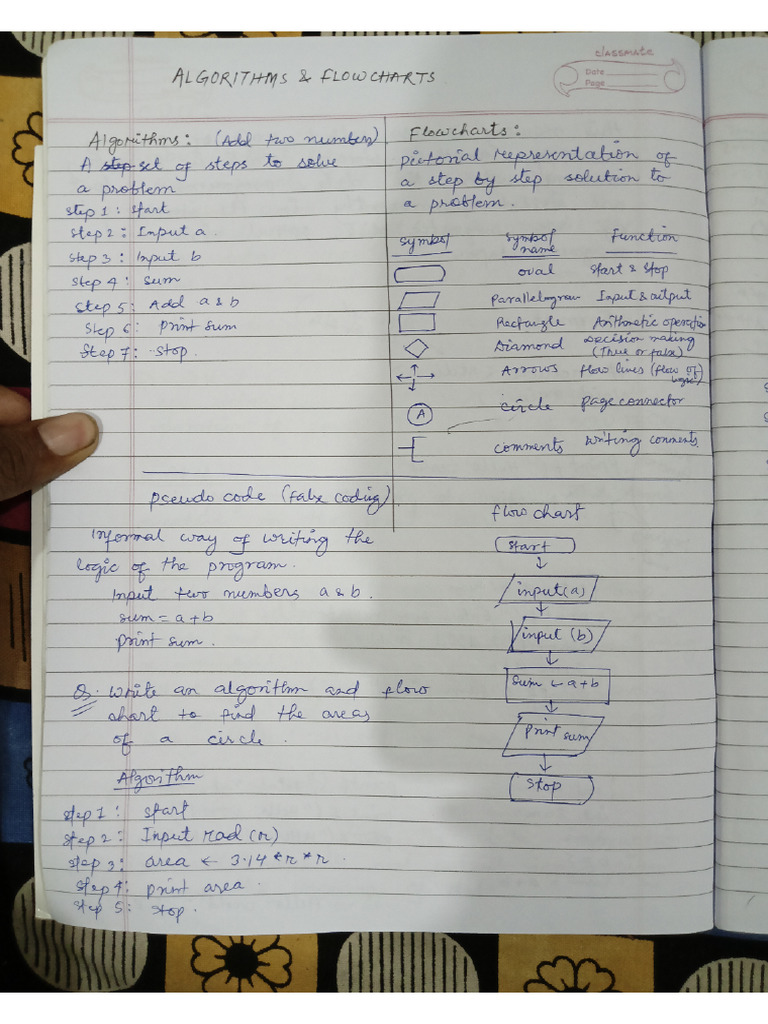 classmate
Date
Page
ALGORITHMS & FLOWCHARTS
Algorithms: (Add two numbers)
A step set of steps to solve
a problem
step 1: start
step 2: Input a.
step 3: Input b
step 4: sum
step 5: Add a & b
step 6: print sum
step 7: stop.
Flowcharts:
pictorial representation of
a step by step solution to
a problem.
symbol symbol name Function
oval start & stop
Parallelogram Input & output
Rectangle Arithmetic operation
Diamond Decision making
(True or false)
Arrows flow lines (flow of
logic)
A circle page connector
comments writing comments.
pseudo code (false coding)
Informal way of writing the
logic of the program.
Input two numbers a & b.
sum = a + b
print sum.
flow chart
start
input(a)
input (b)
sum ← a+b
print sum
stop
Q. write an algorithm and flow
chart to find the areas
of a circle.
Algorithm
step 1: start
step 2: Input rad (r)
step 3: area ← 3.14 * r * r.
step 4: print area.
step 5: stop.